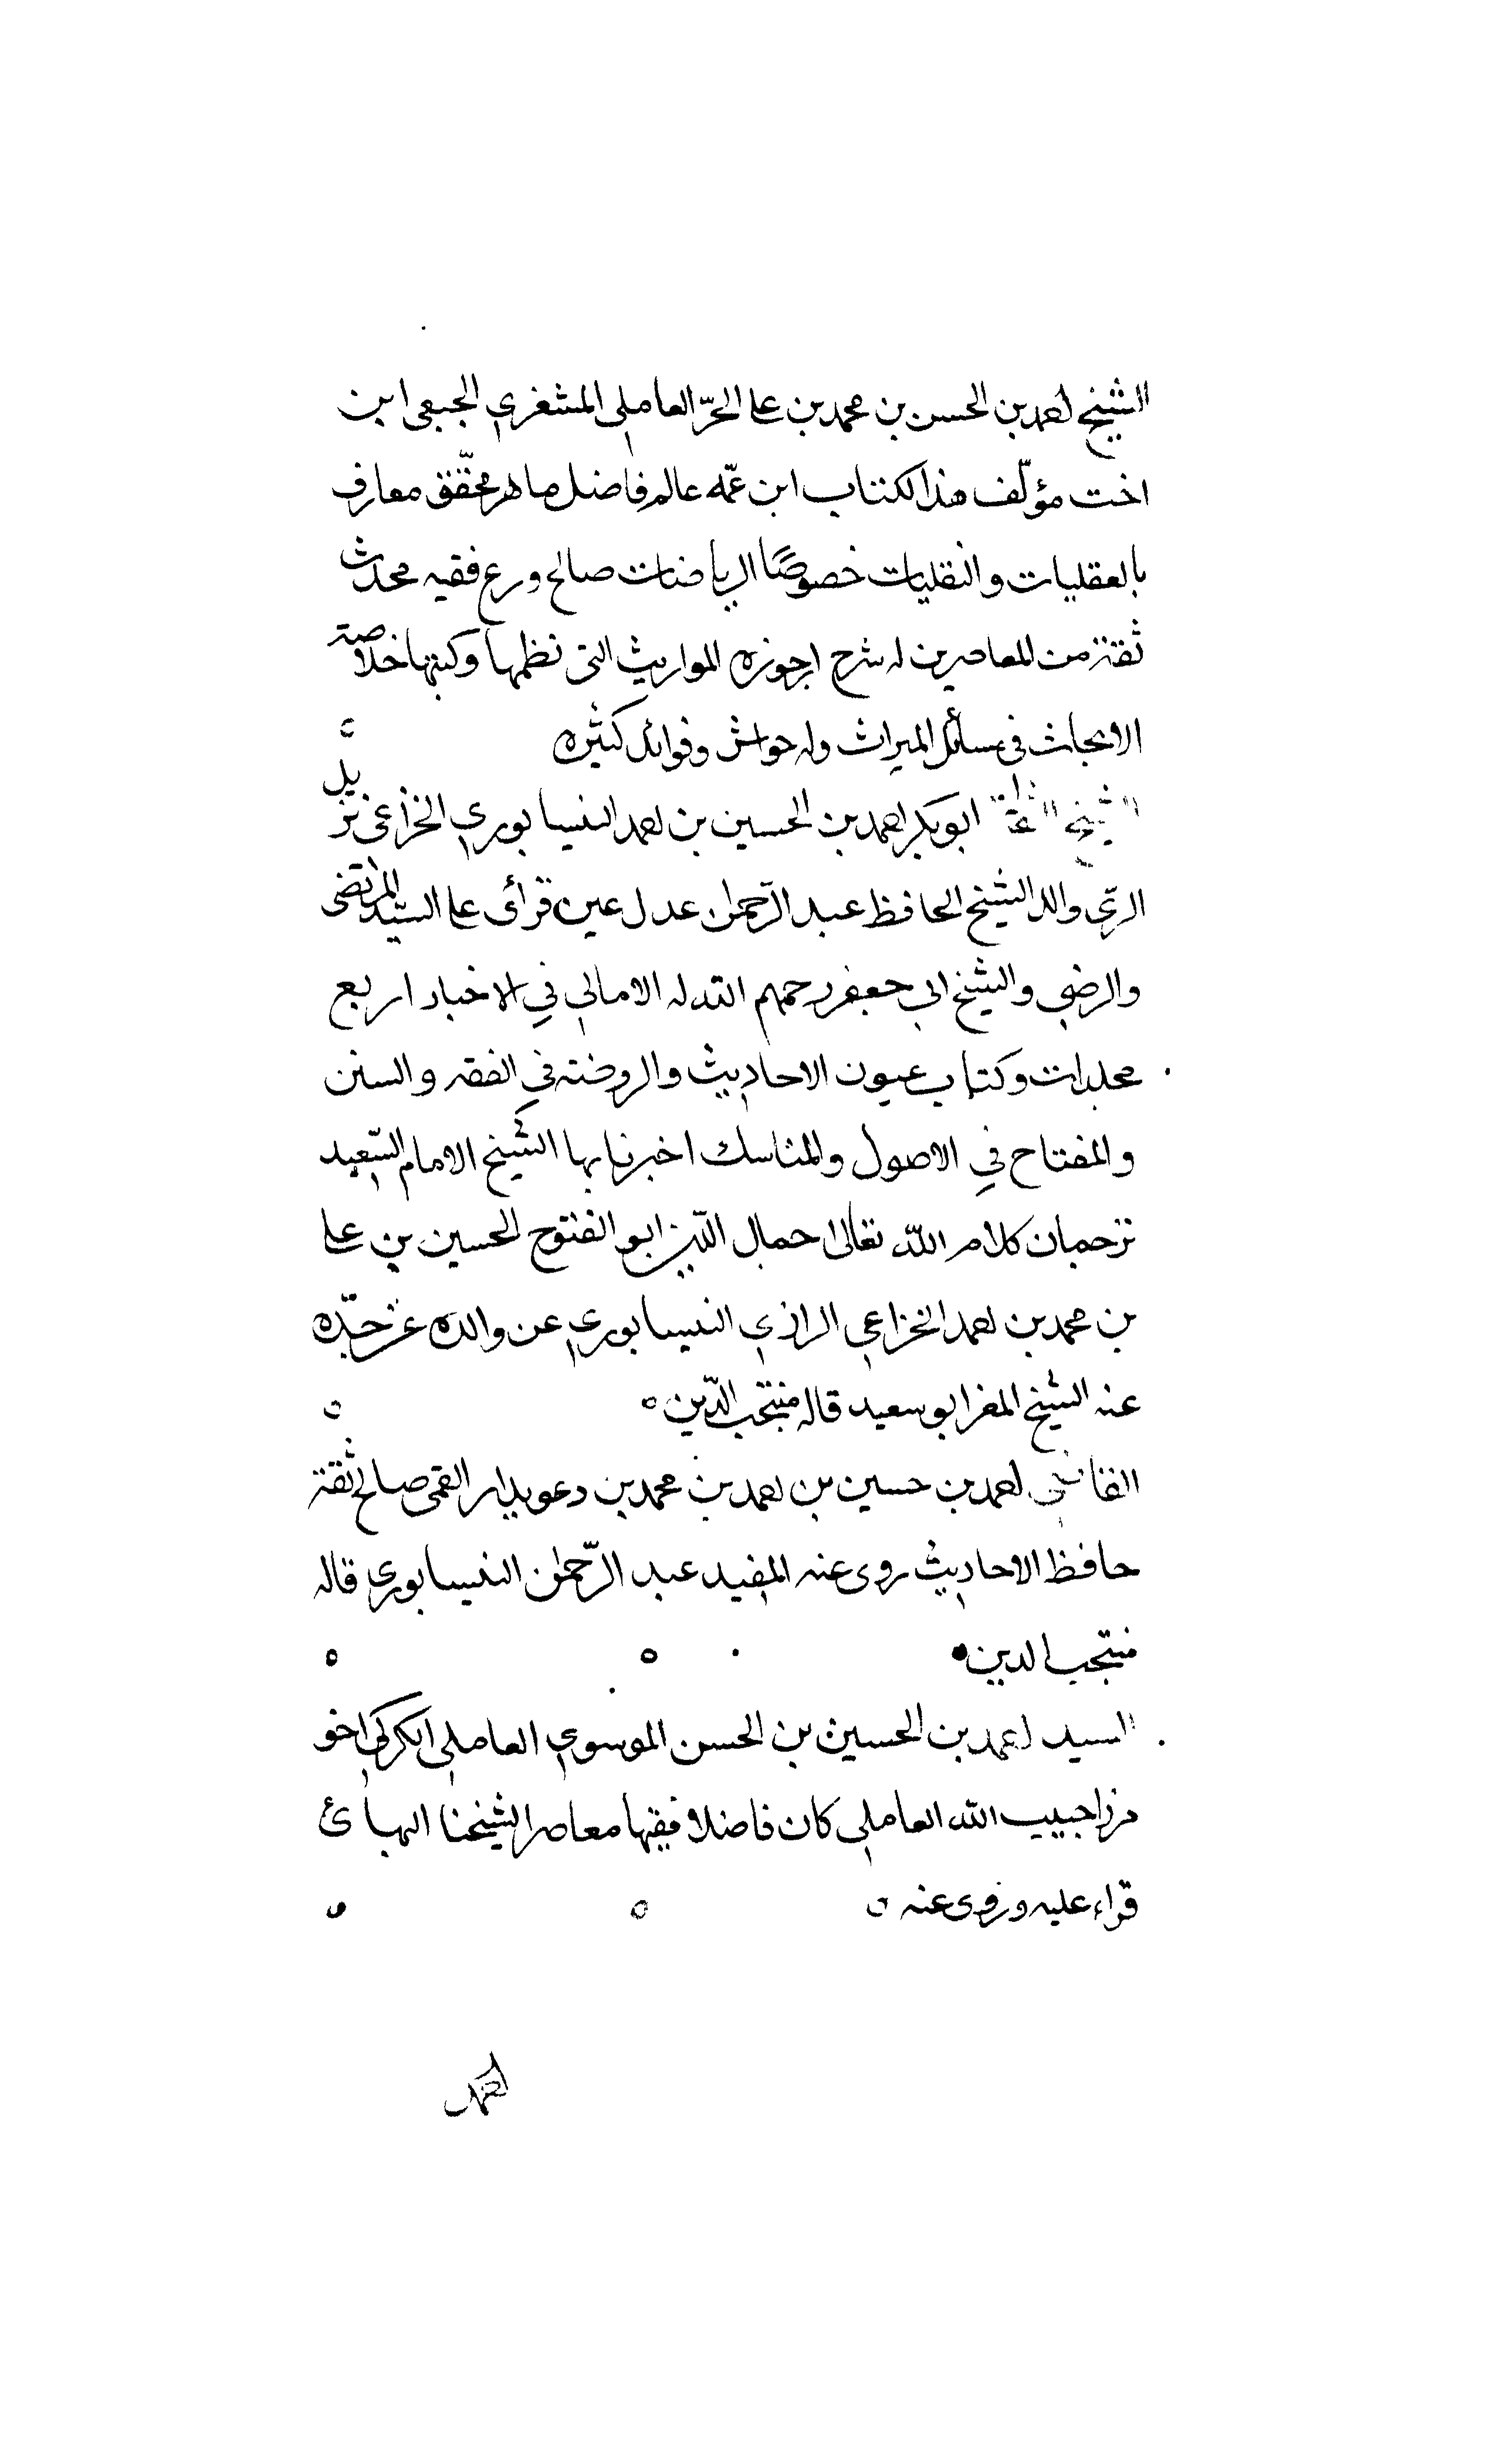 الشيخ احمد بن الحسن بن محمد بن على الحرّ العاملي المشغري الجبعي ابن
اخت مؤلّف هذا الكتاب ابن عمّه عالم فاضل ماهر محقّق معارف
بالعقليات والنقليات خصوصًا الرياضات صالح ورع فقيه محدث
ثقة من المعاصرين له شرح ارجوزه المواريث التى نظمها وكتبها خلاصة
الابحاث في مسائل الميراث وله حواش وفوائد كثيره
الشيخ الثقة ابو بكر احمد بن الحسين بن احمد النيسابوري الخزاعي نزيل
الري والد الشيخ الحافظ عبد الرّحمٰن عدل عين قرأى على السيّد المرتضى
والرضي والشيخ ابي جعفر رحمهم الله له الامالي في الاخبار اربع
مجلدات وكتاب عيون الاحاديث والروضة في الفقه والسنن
والمفتاح في الاصول والمناسك اخبرنا بها الشيخ الامام السّعيد
ترجمان كلام اللّه تعالى جمال الدّين ابو الفتوح الحسين بن على
بن محمد بن احمد الخزاعي الرازي النيسابوري عن والده عن جدّه
عنه الشيخ المفر ابو سعيد قاله منتجب الدّين
القاضي احمد بن حسين بن احمد بن محمد بن دعويدار القمى صالح ثقة
حافظ الاحاديث روى عنه المفيد عبد الرّحمٰن النيسابوري قاله
منتجب الدين
السيد احمد بن الحسين بن الحسن الموسوي العاملي الكركي اخو
مرزا حبيب الله العاملي كان فاضلا فقيها معاصرا لشيخنا البهائ
قراء عليه وروى عنه
احمد